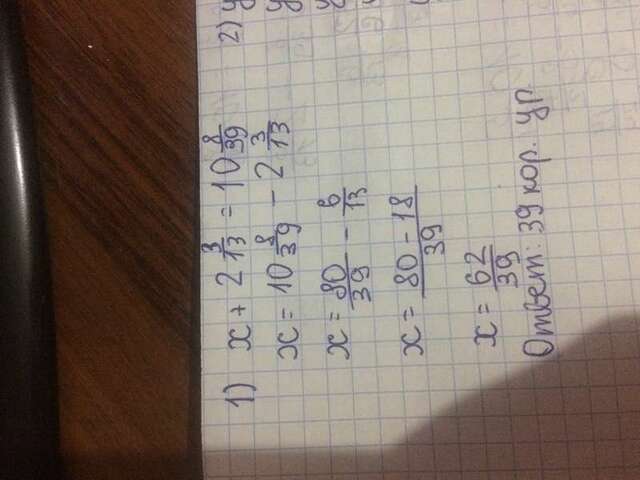 1) x + 2 3/13 = 10 8/39
x = 10 8/39 - 2 3/13
x = 80/39 - 6/13
x = 80 - 18/39
x = 62/39
Ответ: 39 кор. ур
2) y